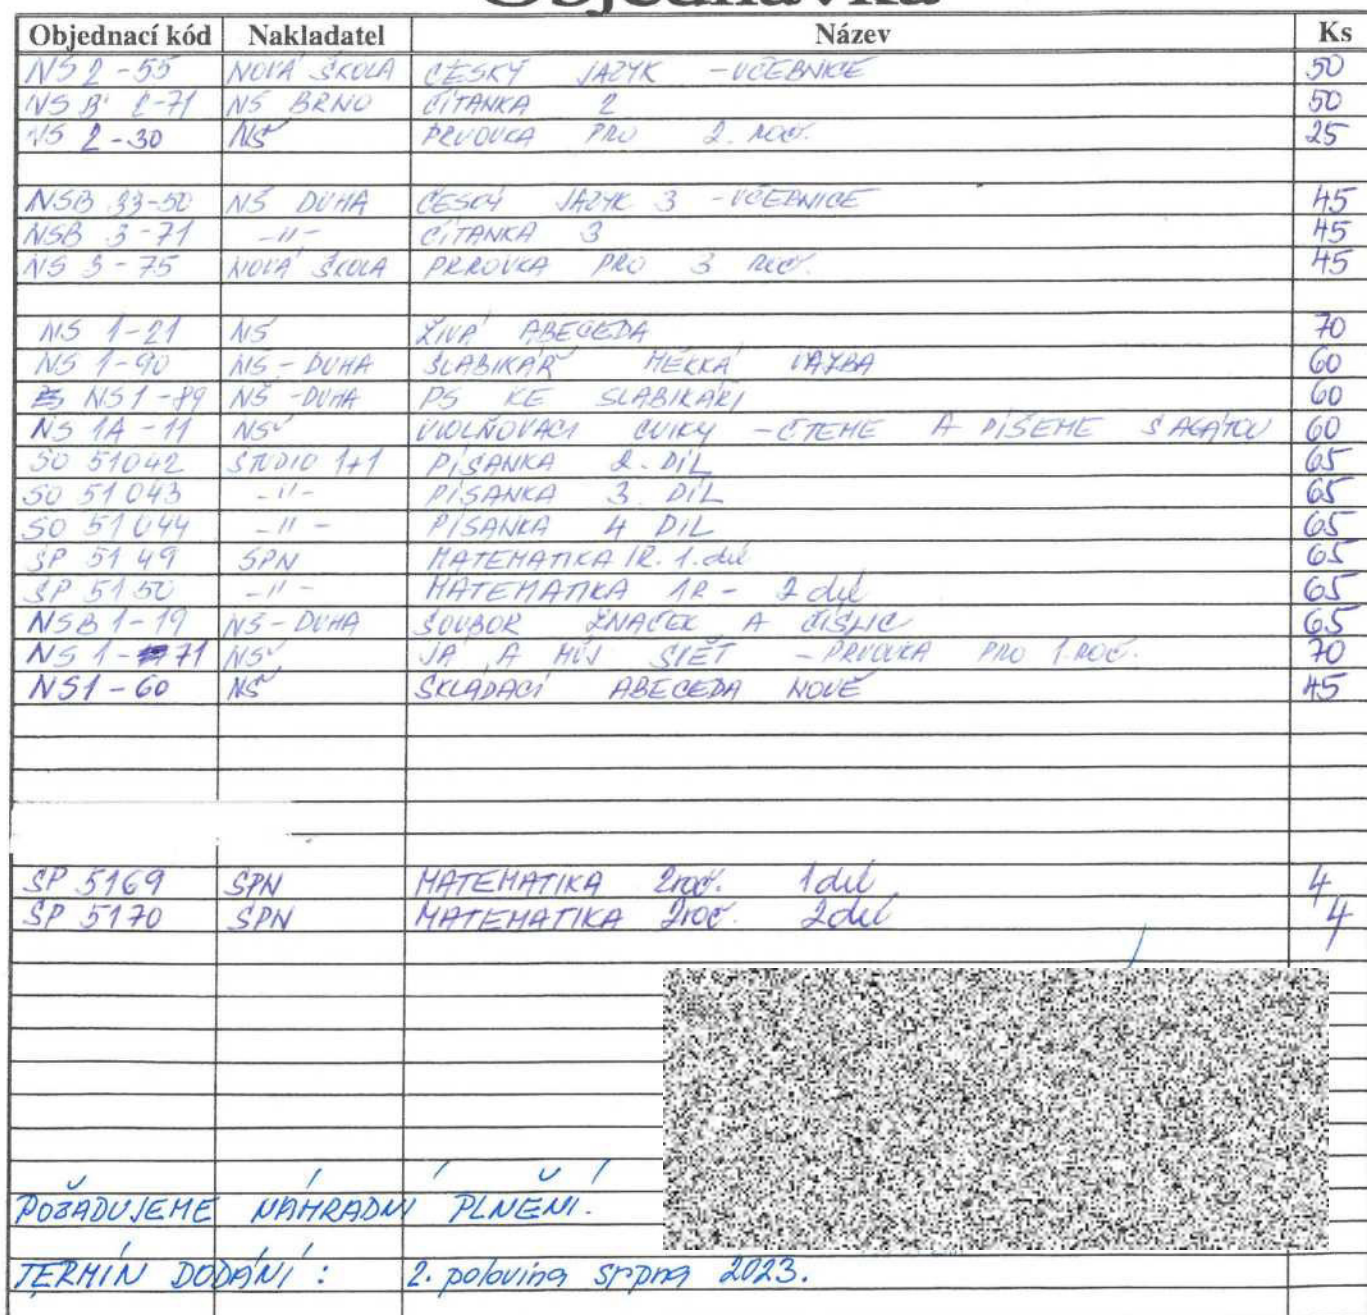 Objednávka
Objednací kód Nakladatel Název Ks
NS 2-55 NOVÁ ŠKOLA ČESKÝ JAZYK - UČEBNICE 50
NS B' 2-71 NS BRNO ČÍTANKA 2 50
NS 2-30 NŠ PRVOUKA PRO 2. ROČ. 25
NSB 33-50 NŠ DUHA ČESKÝ JAZYK 3 - UČEBNICE 45
NSB 3-71 -11- ČÍTANKA 3 45
NS 3-75 NOVÁ ŠKOLA PRVOUKA PRO 3 ROČ. 45
NS 1-21 NŠ ŽIVÁ ABECEDA 70
NS 1-90 NŠ - DUHA SLABIKÁŘ MĚKKÁ VAZBA 60
NS1-89 NŠ - DUHA PS KE SLABIKÁŘI 60
NS 1A-11 NŠ UVOLŇOVACÍ CVIKY - ČTEME A PÍŠEME S AGÁTOU 60
SO 51042 STUDIO 1+1 PÍSANKA 2. DÍL 65
SO 51043 -11- PÍSANKA 3. DÍL 65
SO 51044 -11- PÍSANKA 4 DÍL 65
SP 5149 SPN MATEMATIKA 1R. 1. díl 65
SP 5150 -11- MATEMATIKA 1R - 2 díl 65
NSB 1-19 NŠ - DUHA SOUBOR ZNAČEK A ČÍSLIC 65
NS 1-71 NŠ JÁ A MŮJ SVĚT - PRVOUKA PRO 1. ROČ. 70
NS1-60 NŠ SKLÁDACÍ ABECEDA NOVĚ 45
SP 5169 SPN MATEMATIKA 2roč. 1díl 4
SP 5170 SPN MATEMATIKA 2roč. 2díl 4
POŽADUJEME NÁHRADNÍ PLNĚNÍ.
TERMÍN DODÁNÍ: 2. polovina srpna 2023.